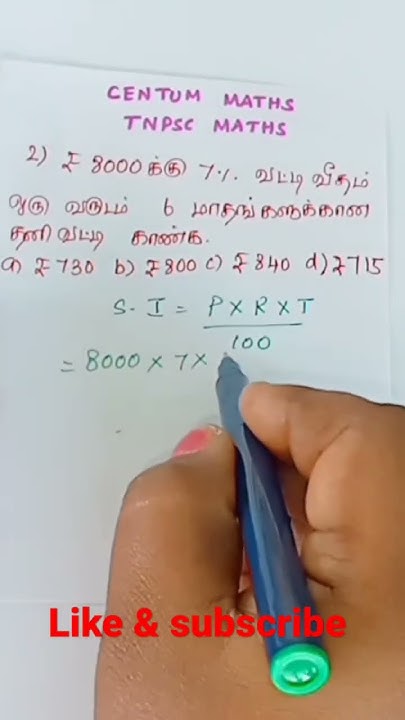 CENTUM MATHS
TNPSC MATHS
2) ₹ 8000க்கு 7% வட்டி வீதம்
ஒரு வருடம் 6 மாதங்களுக்கான
தனிவட்டி காண்க.
a) ₹730 b) ₹800 c) ₹840 d) ₹715
S.I = P X R X T
100
= 8000 X 7 X
Like & subscribe